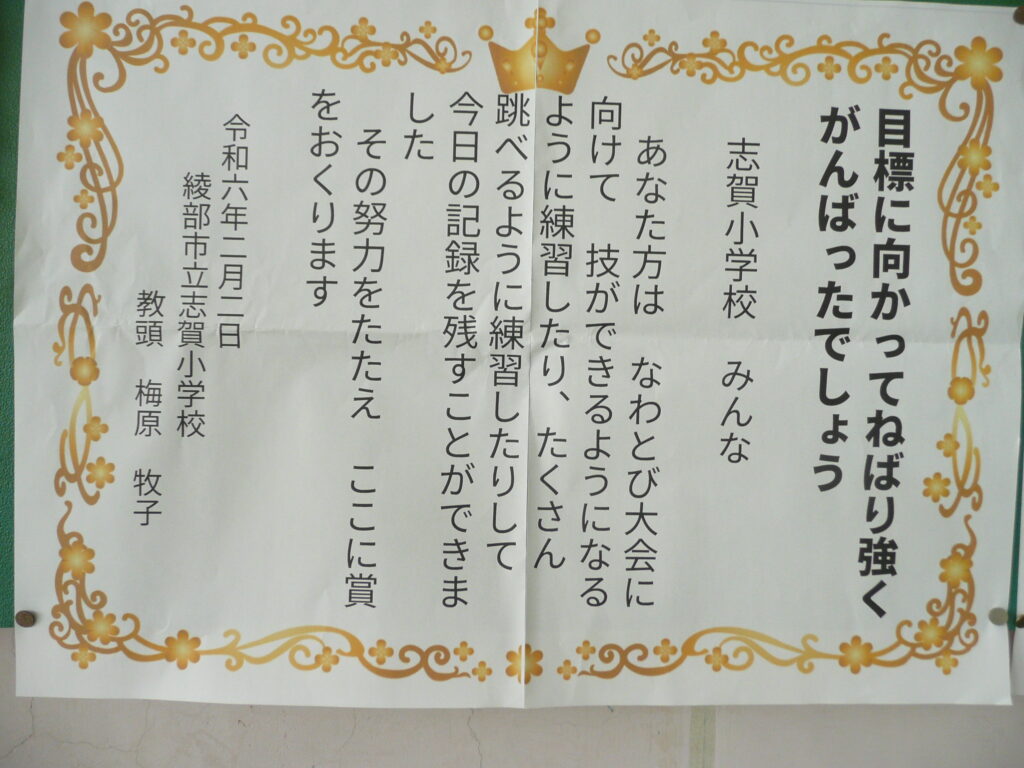 目標に向かってねばり強く
がんばったでしょう
志賀小学校　みんな
あなた方は　なわとび大会に
向けて　技ができるようになる
ように練習したり、たくさん
跳べるように練習したりして
今日の記録を残すことができま
した
その努力をたたえ　ここに賞
をおくります
令和六年二月二日
綾部市立志賀小学校
教頭　梅原　牧子